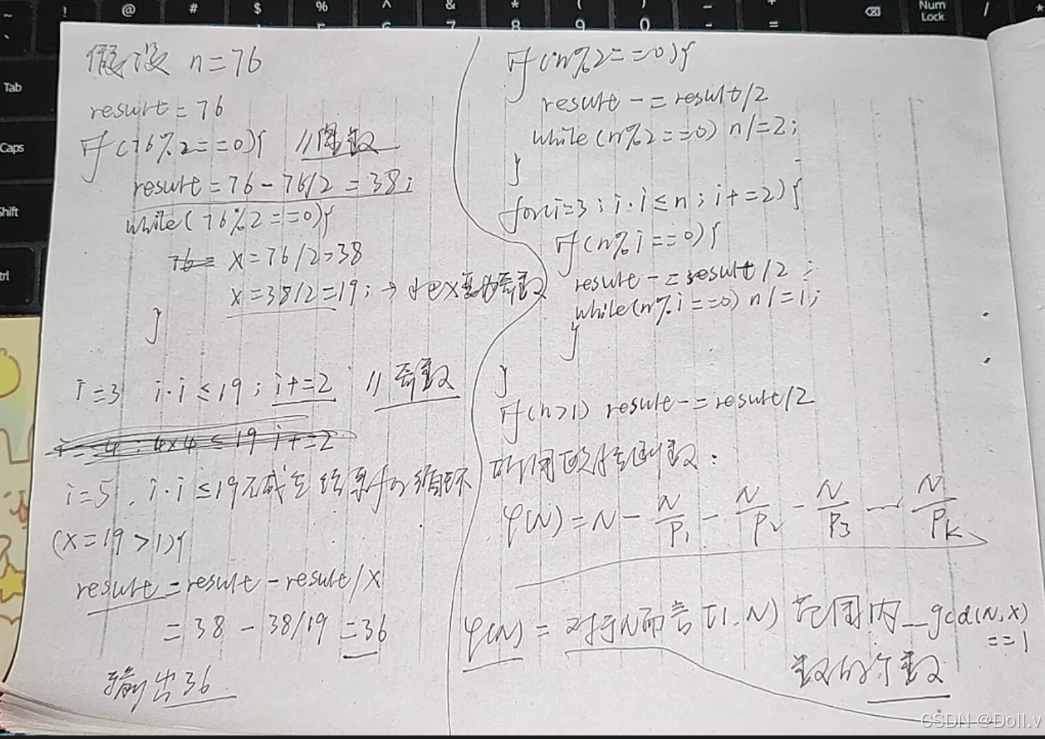 假设 n=76
result=76
if(76%2==0){ //偶数
result=76-76/2=38;
while(76%2==0){
76= x=76/2=38
x=38/2=19; → 把x变为奇数
}
i=3 i·i≤19; i+=2 //奇数
i=4; 4×4≤19 i+=2
i=5, i·i≤19不成立 结束for循环
(x=19>1){
result=result-result/x
=38-38/19=36
输出36
if(n%2==0){
result-=result/2
while(n%2==0) n/=2;
}
for(i=3; i·i≤n; i+=2){
if(n%i==0){
result-=result/2;
while(n%i==0) n/=i;
}
}
if(n>1) result-=result/2
欧拉函数:
φ(N)=N-N/P₁-N/P₂-N/P₃-…N/Pₖ
φ(N)=对于N而言[1,N)范围内__gcd(N,x)
==1
数的个数
CSDN @Doll.v
~
!
@
#
$
%
^
&
*
(
)
-
+
=
6
7
8
9
0
Num Lock
/
*
Tab
Caps
Shift
trl